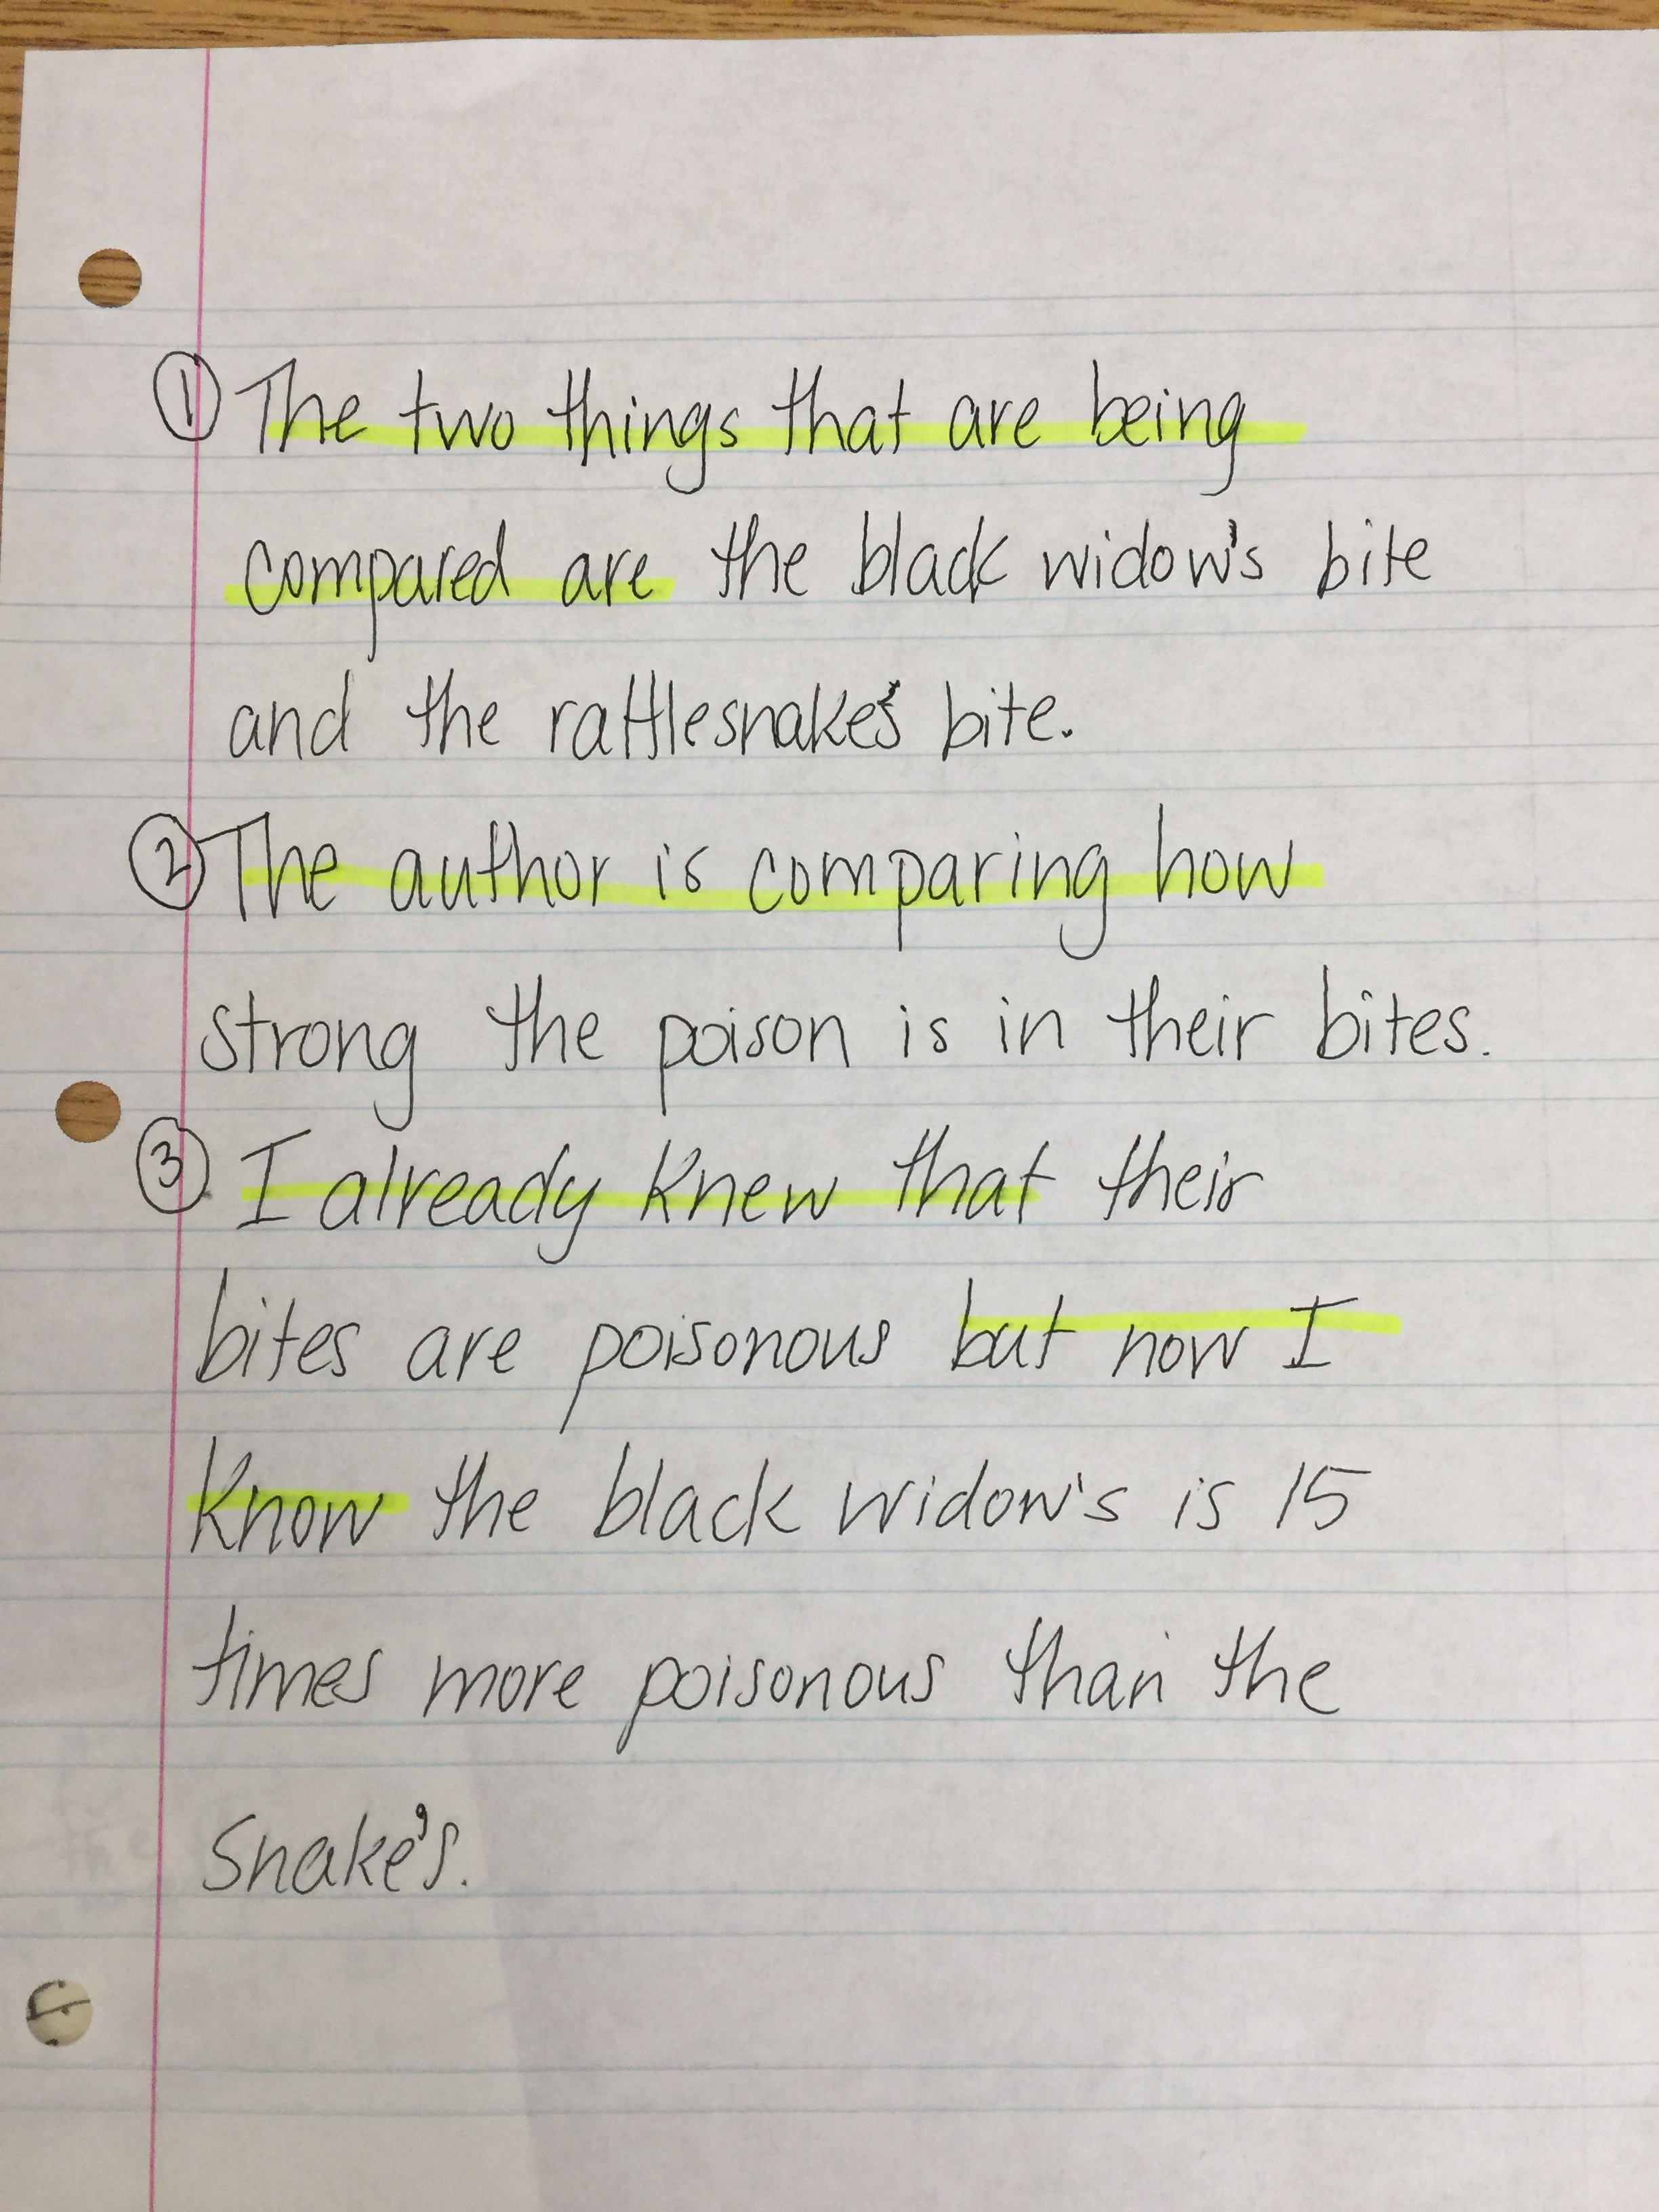 ① The two things that are being
compared are the black widow's bite
and the rattlesnake's bite.
② The author is comparing how
strong the poison is in their bites.
③ I already knew that their
bites are poisonous but now I
know the black widow's is 15
times more poisonous than the
snake's.